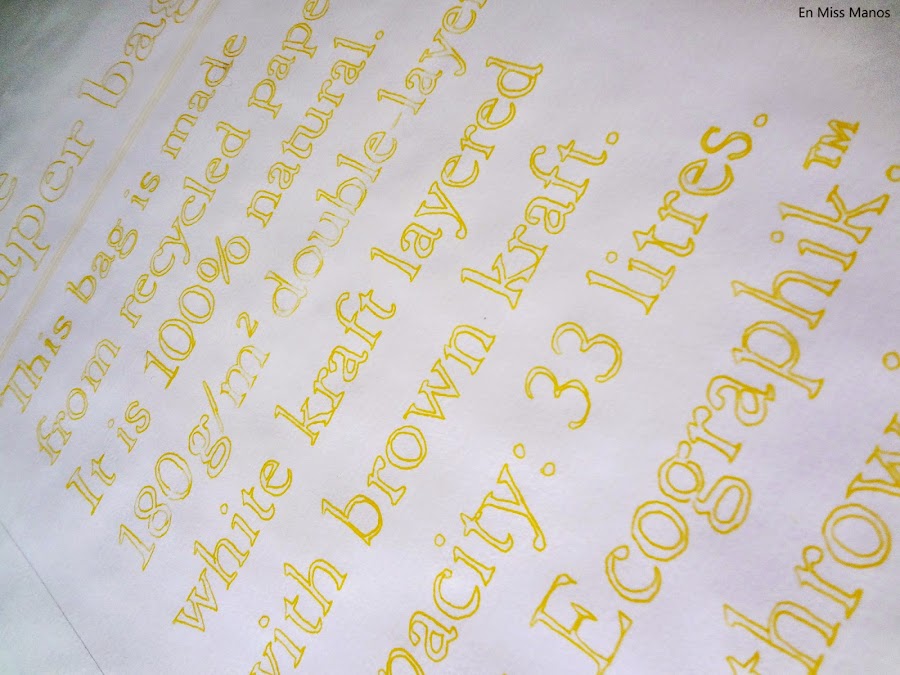 En Miss Manos
aper bag
This bag is made
from recycled pape
It is 100% natural.
180g/m² double-layer
white kraft layered
with brown kraft.
pacity: 33 litres.
Ecographik.™
throw